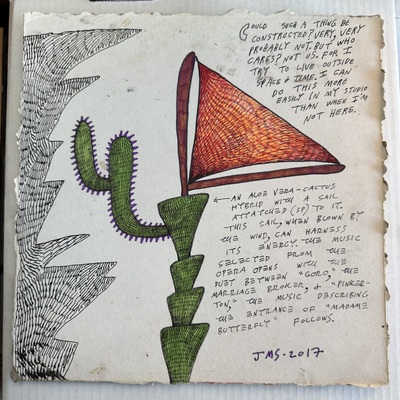 COULD SUCH A THING BE
CONSTRUCTED? VERY, VERY
PROBABLY NOT. BUT WHO
CARES? NOT US. FOR I
TRY TO LIVE OUTSIDE
SPACE & TIME. I CAN
DO THIS MORE
EASILY IN MY STUDIO
THAN WHEN I'M
NOT HERE.
AN ALOE VERA-CACTUS
HYBRID WITH A SAIL
ATTATCHED (SP) TO IT.
THIS SAIL, WHEN BLOWN BY
THE WIND, CAN HARNESS
ITS ENERGY. THE MUSIC
SELECTED FROM THE
OPERA OPENS WITH THE
DUET BETWEEN "GORO," THE
MARRIAGE BROKER, & "PINKER-
TON," THE MUSIC DESCRIBING
THE ENTRANCE OF "MADAME
BUTTERFLY" FOLLOWS.
JMS·2017